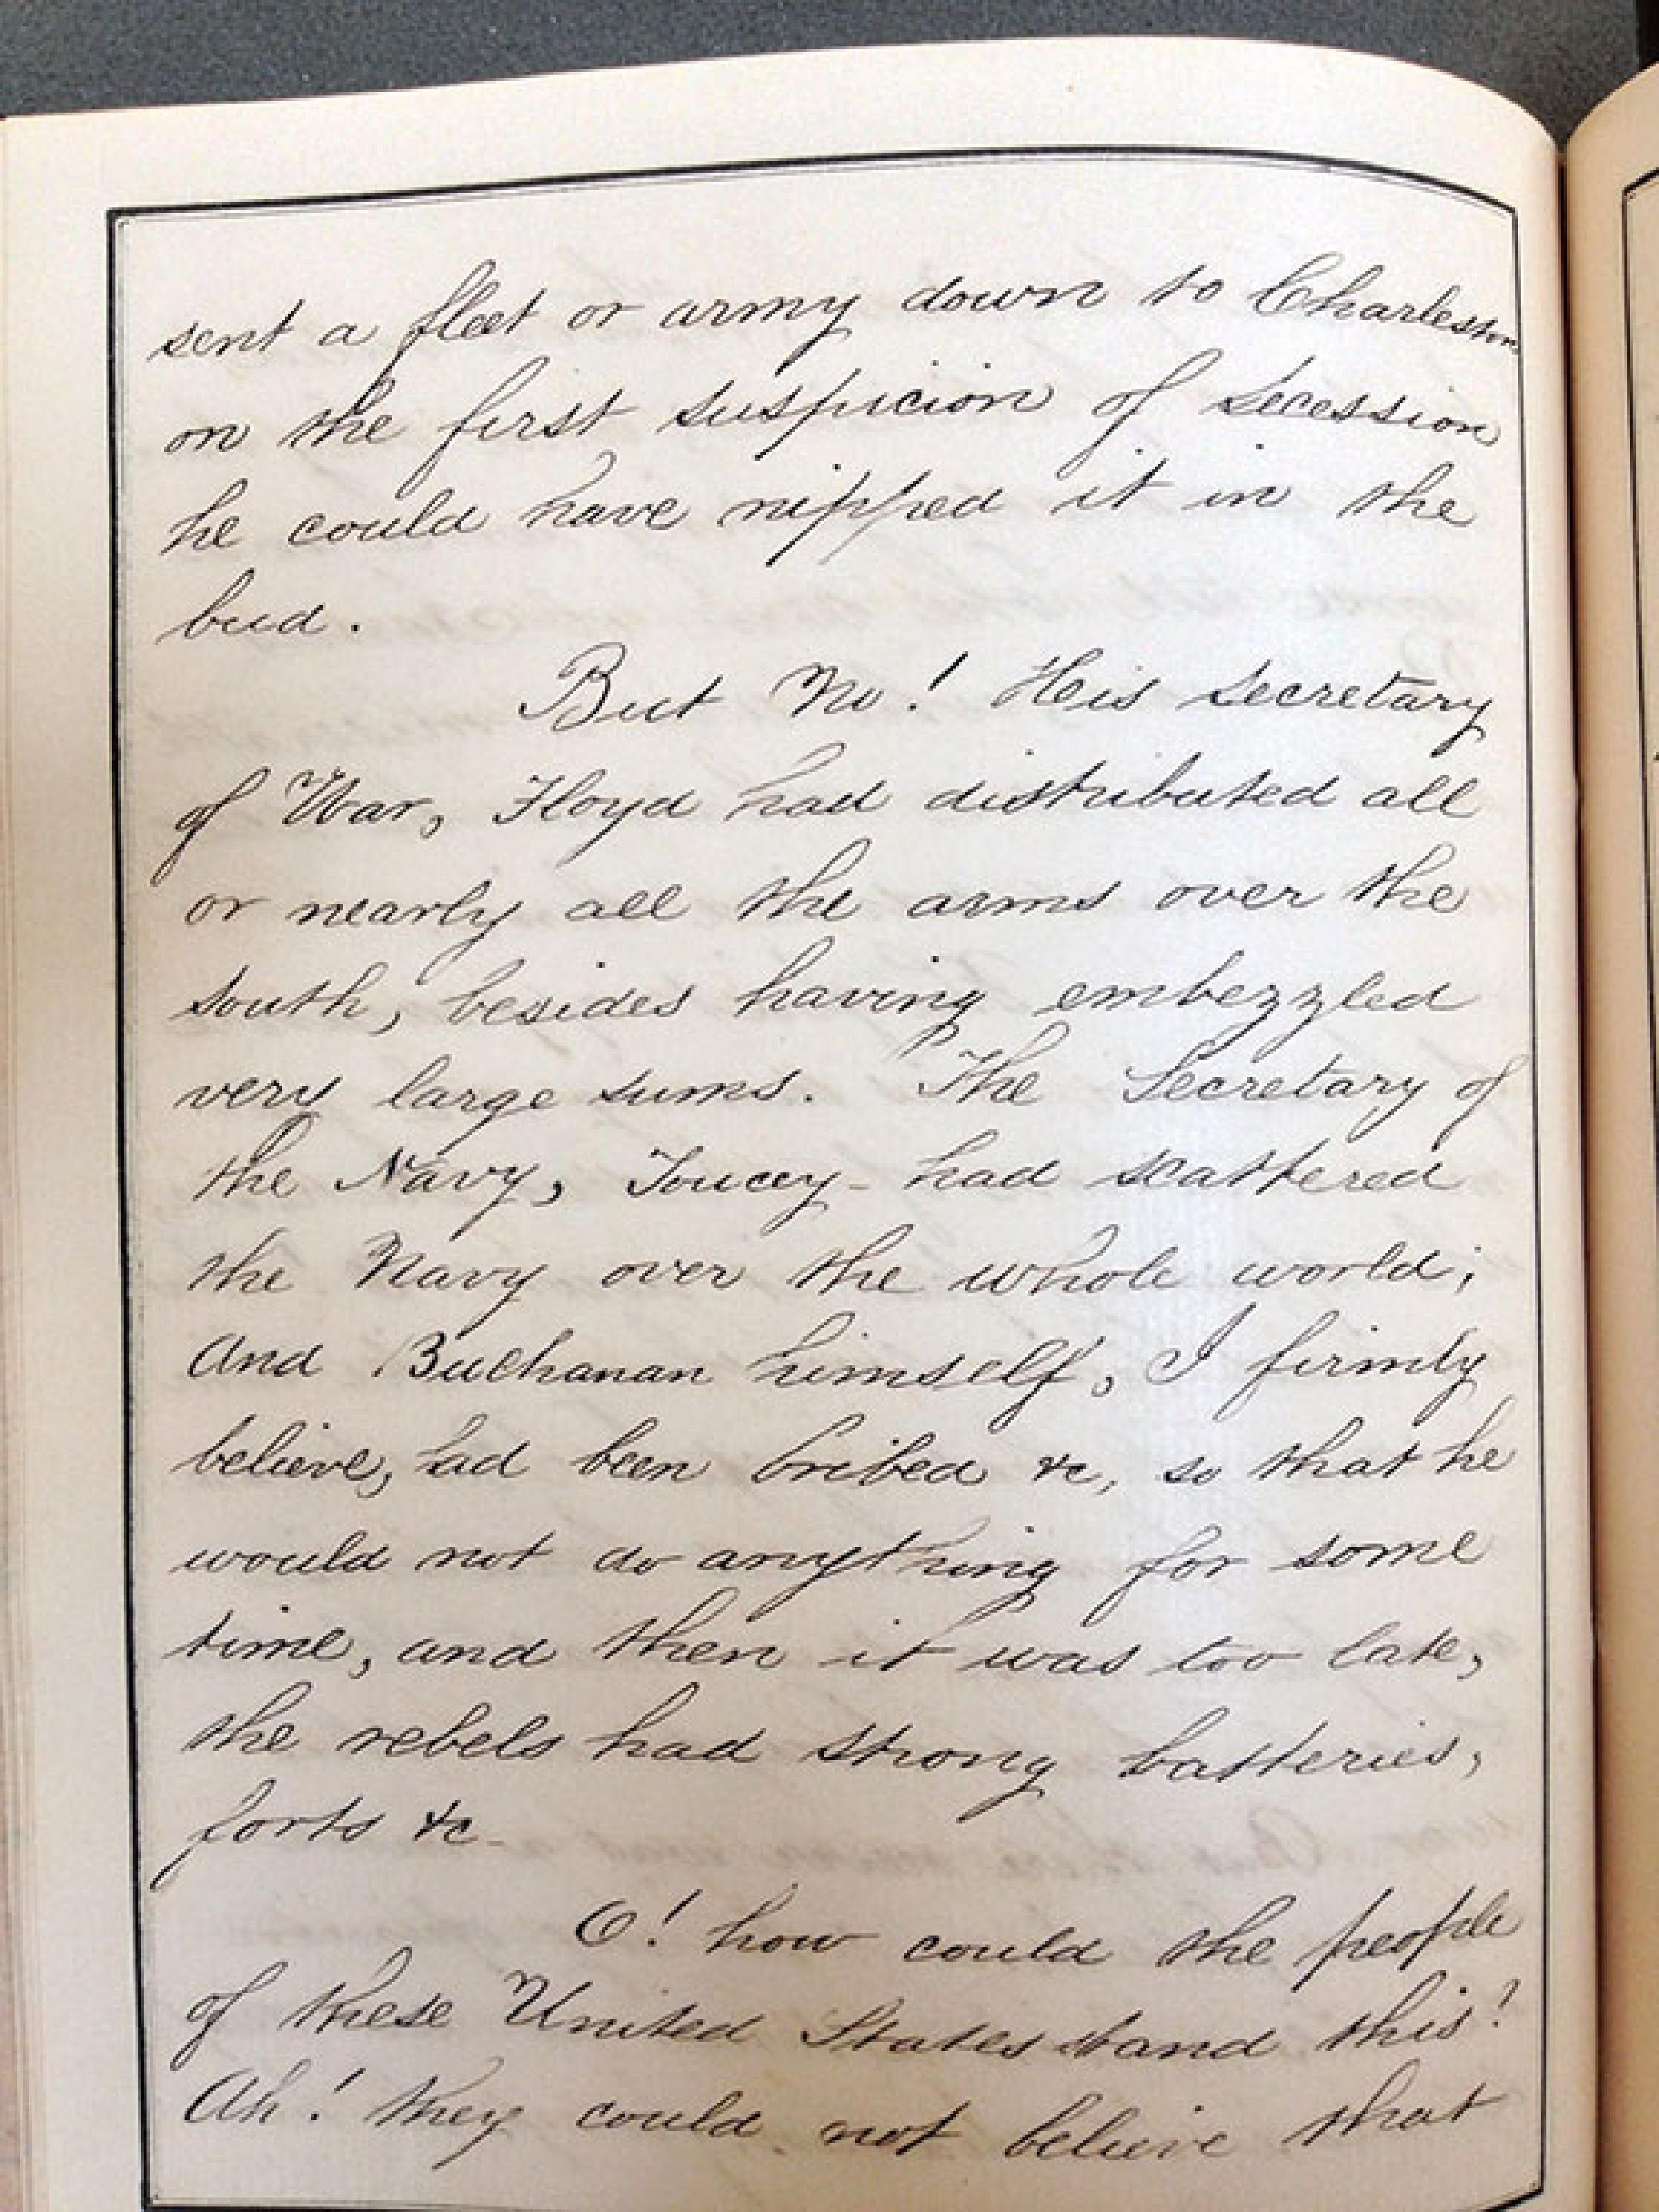 sent a fleet or army down to Charleston
on the first suspicion of Secession
he could have nipped it in the
bud.
But No! His Secretary
of War, Floyd had distributed all
or nearly all the arms over the
South, besides having embezzled
very large sums. The Secretary of
the Navy, Toucey - had scattered
the Navy over the whole world;
and Buchanan himself, I firmly
believe, had been bribed &c, so that he
would not do anything for some
time, and then it was too late,
the rebels had strong batteries,
forts &c -
O! how could the people
of these United States stand this!
Ah! they could not believe that